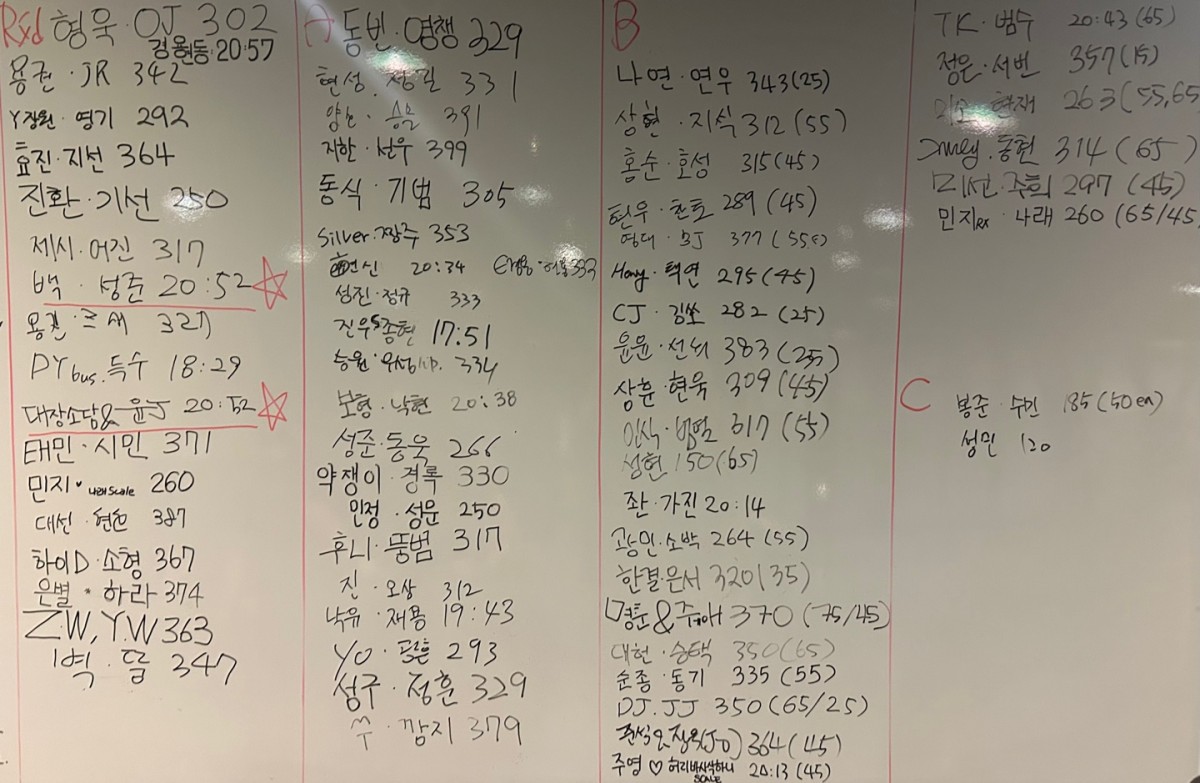 Rxd 형욱 · OJ 302
경용현동·20:57
용권 · JR 342
Y장원 · 영기 292
효진·지선 364
진환·기선 250
제시·어진 317
백 · 성준 20:52
327
DY bus.득수 18:29
대장소담& 윤J 20:52
태민·시민 371
민지· 나래scale 260
대선 · 현승 387
하이D · 소형 367
은별 · 하라 374
ZW, YW 363
1벽 · 담 347
A 동빈·영쟁 329
현성· 331
391
지한 · 선우 399
동식 · 기범 305
Silver·짱주 353
20:34 333
성진·정규 333
진우s종현 17:51
승원· 334
보형·낙현 20:38
성준·동욱 266
약쟁이·경록 330
민정 · 성문 250
후니·뚱범 317
진 · 오상 312
낙유 · 재용 19:43
YO · 293
성구 · 정훈 329
쑤 · 깜지 379
B
나연·연우 343(25)
상현 · 지식 312 (55)
홍순·호성 315(45)
현우· 289 (45)
영대 · BJ 377
Hong · 택연 295(45)
CJ · 김쏘 282 (25)
윤윤·선뇌 383 (25)
상훈·현욱 309 (45)
인식·범열 317 (55)
성현 150(65)
좐·가진 20:14
광민·소박 264(55)
한결은서 320(35)
경훈&주애 370 (75/45)
대헌 · 승택 350(65)
순종·동기 335 (55)
DJ.JJ 350(65/25)
364(45)
주영 ♡ 허리바사삭하니 SCALE 20:13 (45)
TK · 범수 20:43 (65)
정은·서빈 357(15)
미소·현재 263(55,65
동현 314 (65)
미선·주희 297 (45)
민지ex · 나래 260 (65/45)
C 봉준 · 수민 185(50en)
성민 120